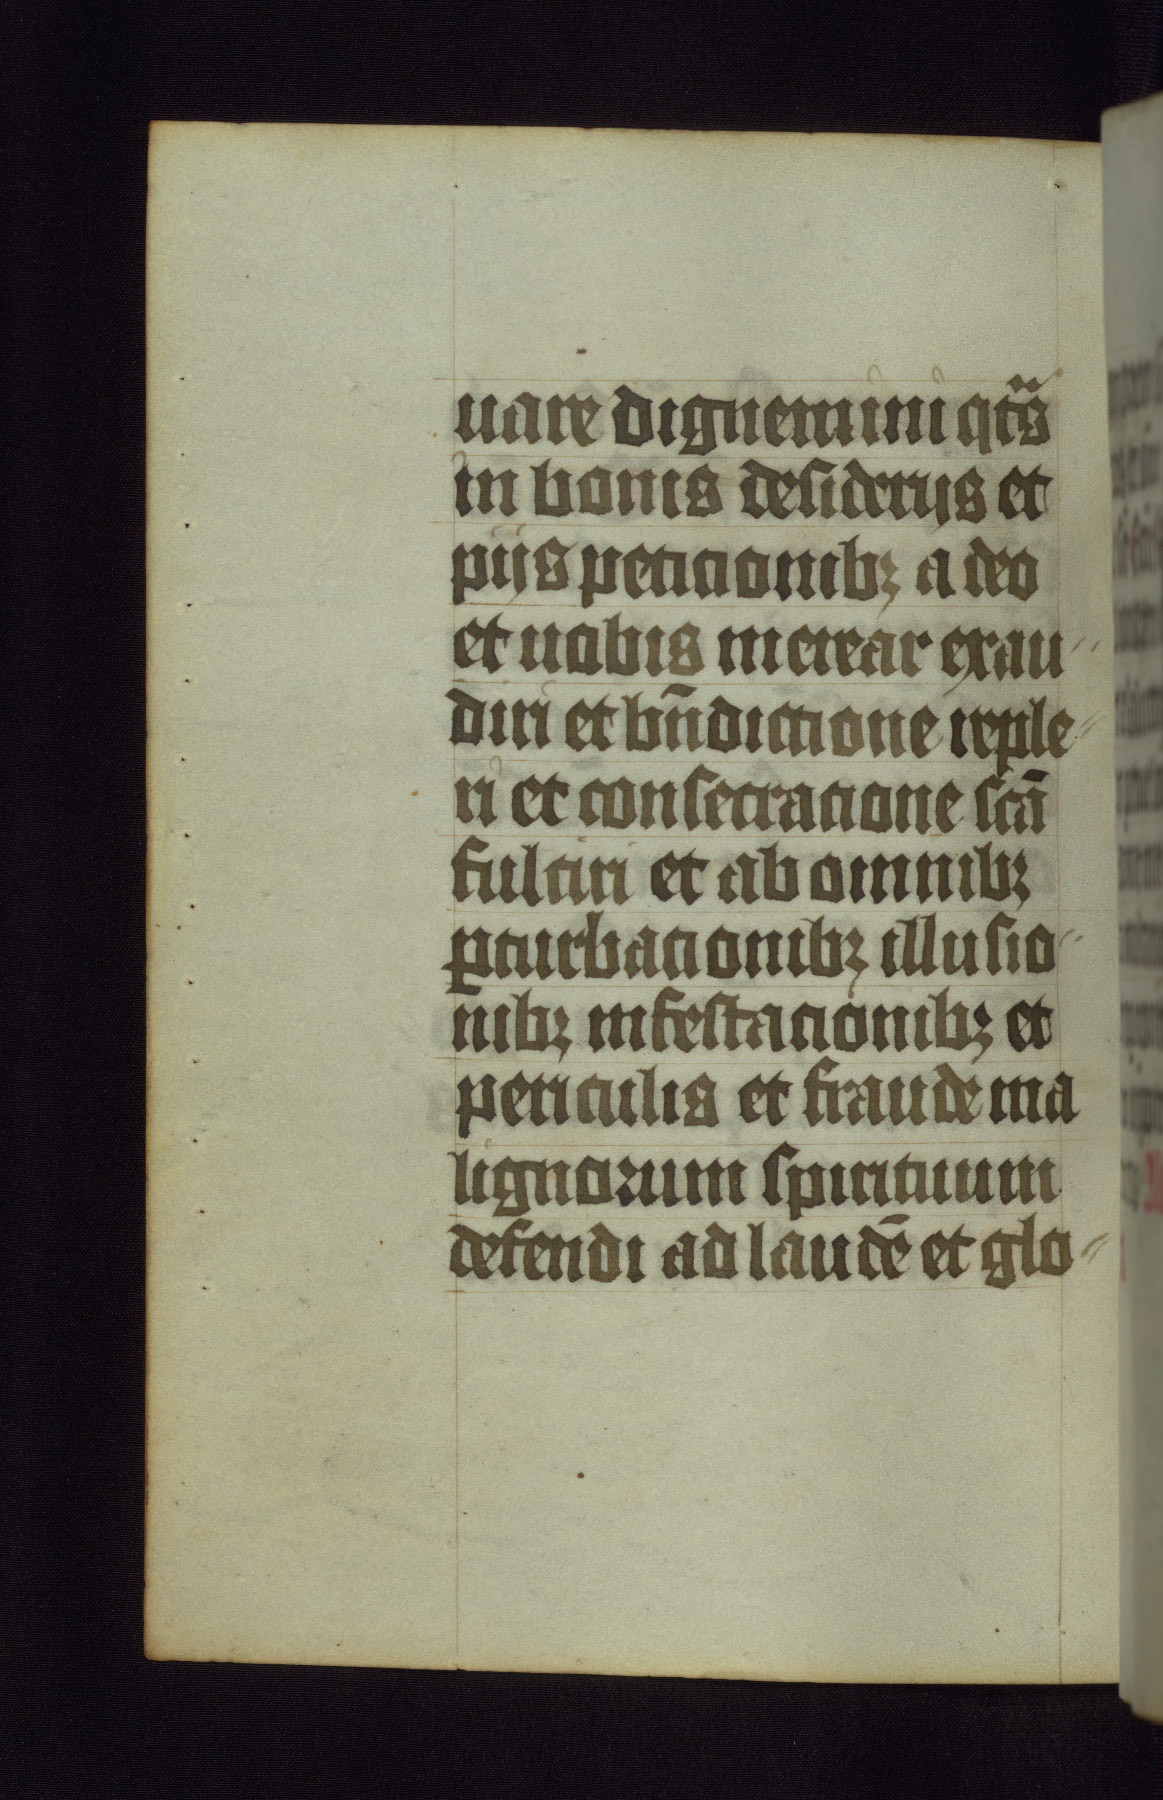 uare dignemini qtꝰs
in bonis desiderijs et
pijs peticionibꝫ a deo
et uobis merear exau
diri et bn̄dictione reple
ri et consecratione scā
fulciri et ab omnibꝫ
ꝑturbacionibꝫ illusio
nibꝫ infestacionibꝫ et
periculis et fraude ma
lignorum spirituum
defendi ad laudē et glo